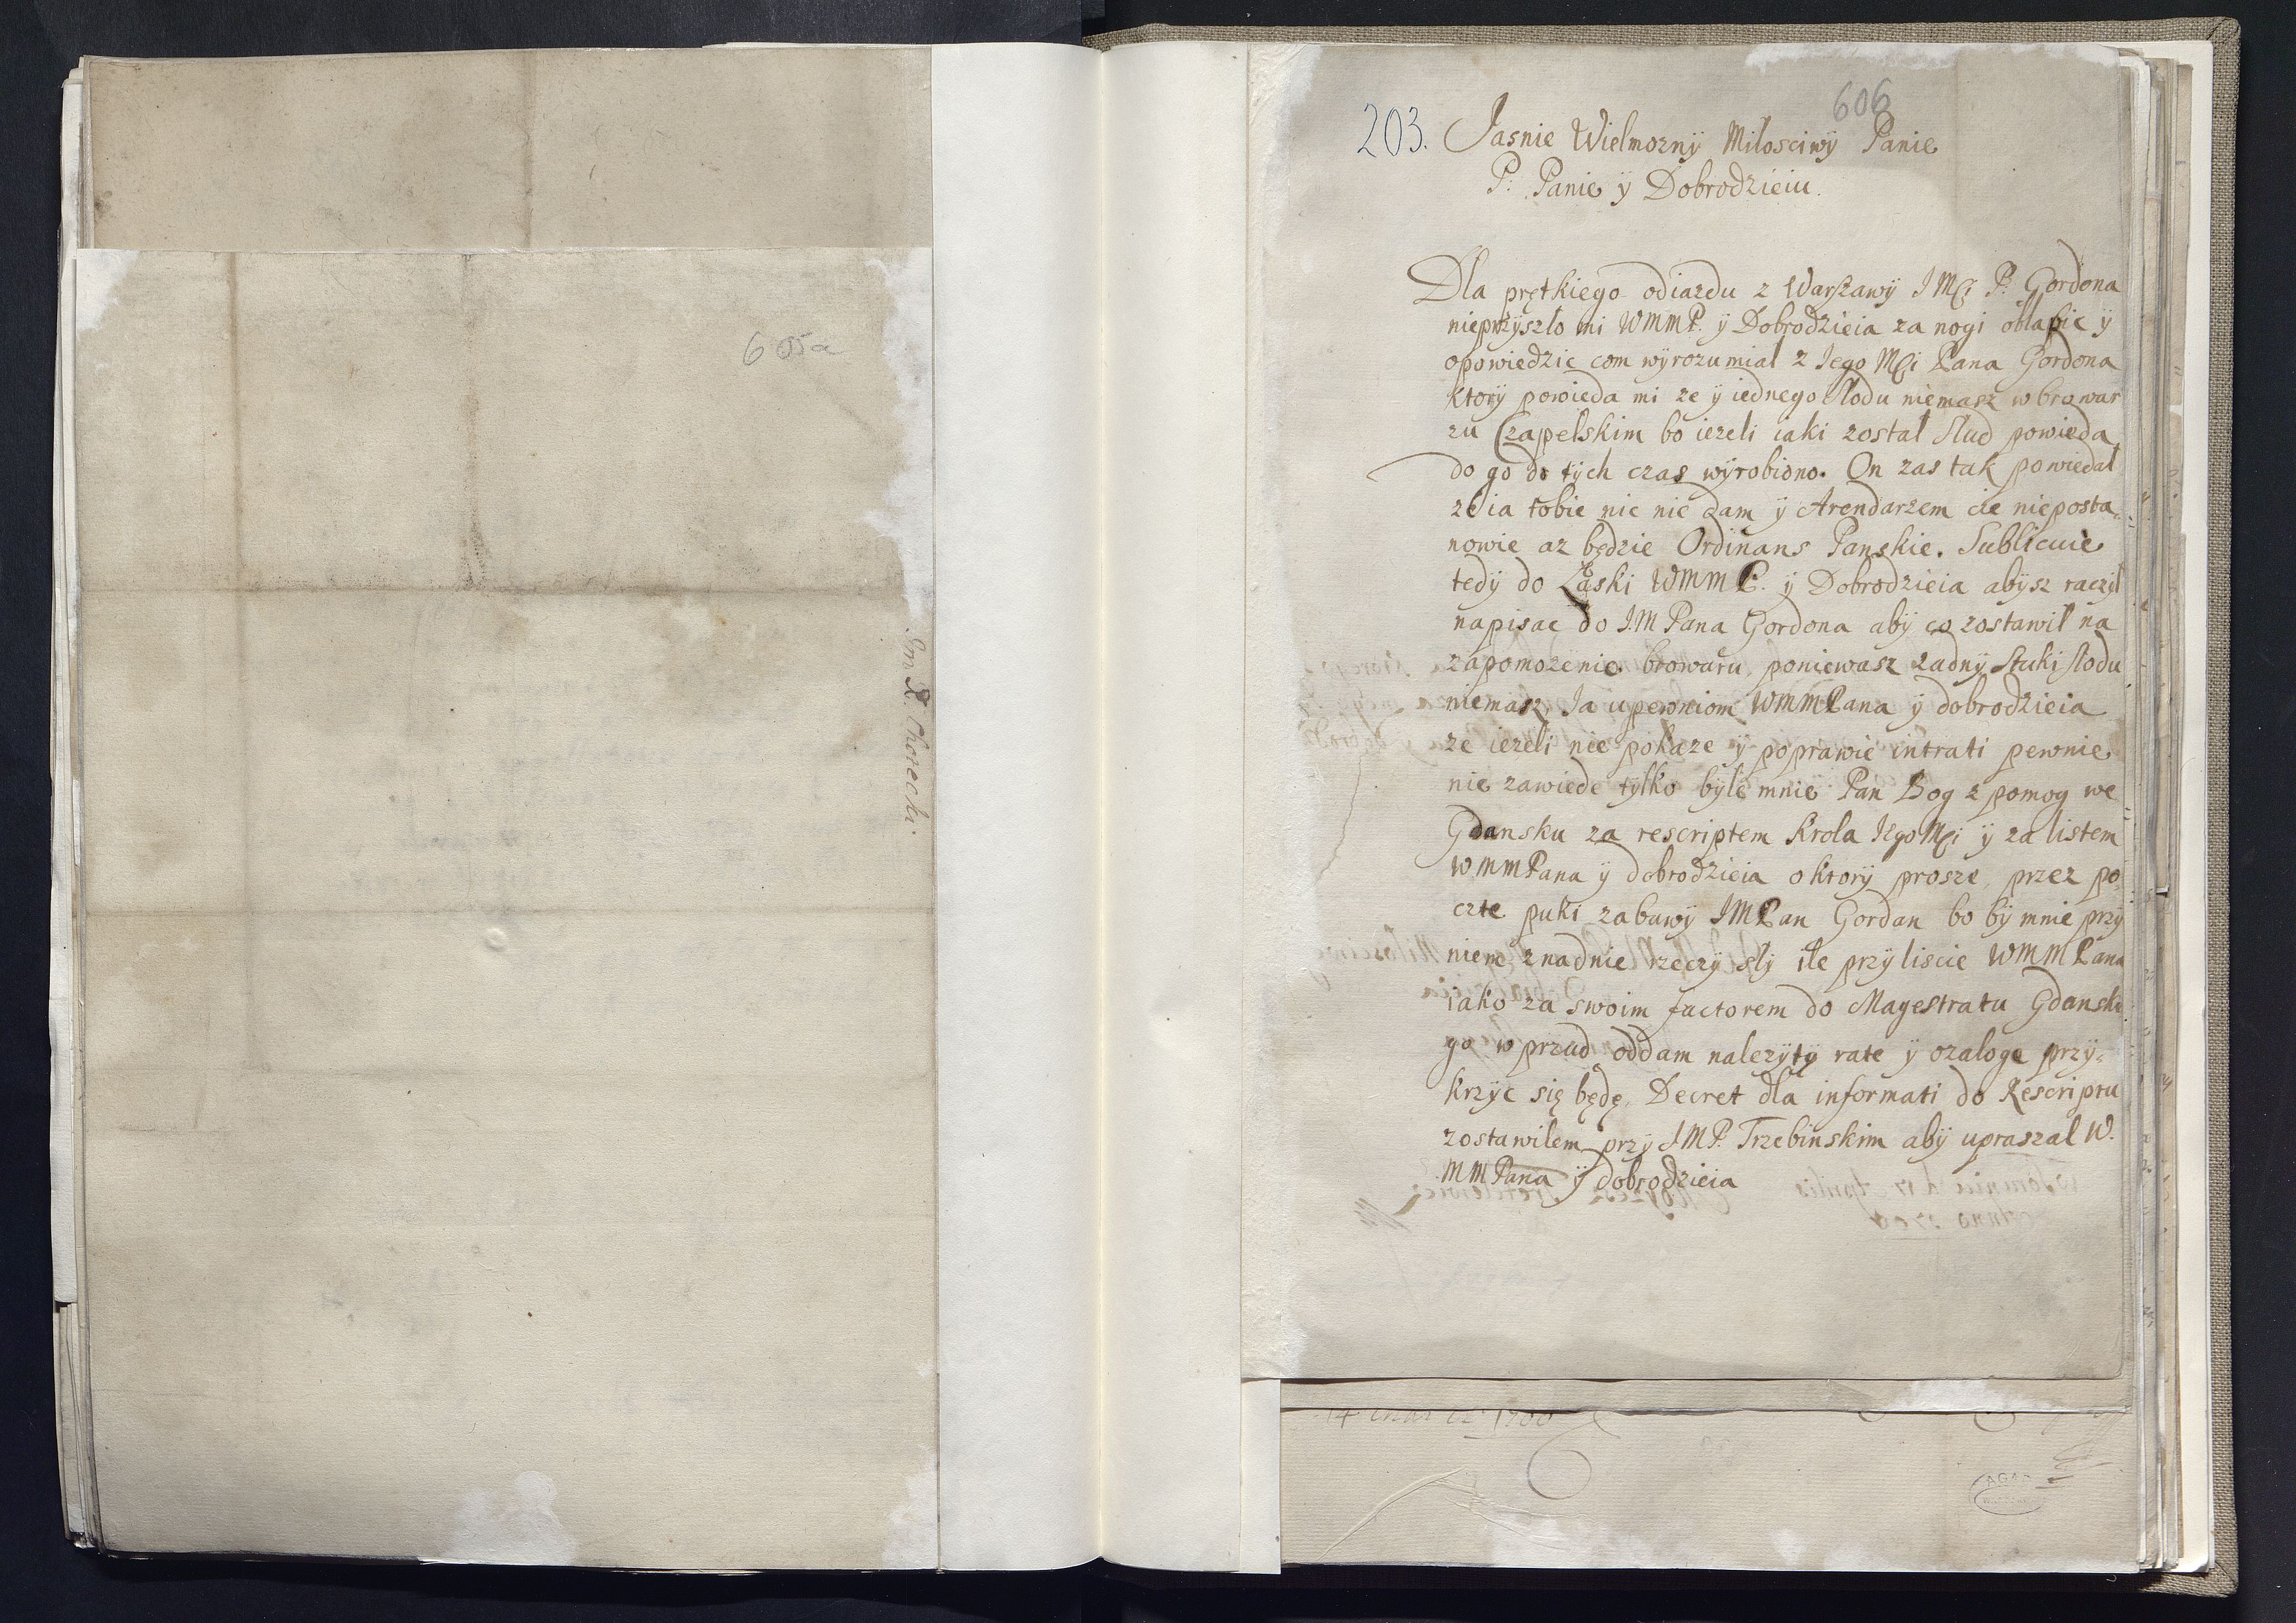 605a
Im X. Chotecki.
606
203. Jasnie Wielmozny Milosciwy Panie
P. Panie ÿ Dobrodzieiu.
Dla prętkiego odiazdu z Warszawÿ J Mci P. Gordona
nieprzÿszło mi WMMP. ÿ Dobrodzieia za nogi obłapic ÿ
opowiedzic com wÿrozumiał z Jego Mci Pana Gordona
ktorÿ powieda mi ze ÿ iednego słodu niemasz w browar
zu Czapelskim bo iezeli iaki został słud powieda
do go do tÿch czas wÿrobiono. On zas tak powiedał
ze ia tobie nic nie dam ÿ Arendarzem cie nieposta=
nowie az będzie Ordinans Panskie. Sublicuie
tedÿ do Łaski WMMP. ÿ Dobrodzieia abÿsz raczÿł
napisac do JM Pana Gordona abÿ co zostawił na
zapomozenie browaru, poniewasz zadnÿ sztuki słodu
niemasz, Ja upewniom WMMPana ÿ dobrodzieia
ze iezeli nie pokaze ÿ poprawie intrati pewnie
nie zawiede tÿlko bÿle mnie Pan Bog zpomog we
Gdansku za rescriptem Krola Jego Mci ÿ za listem
WMMPana ÿ dobrodzieia o ktorÿ prosze, przez po=
czte puki zabawÿ JMPan Gordan bo bÿ mnie przÿ
niem znadnie rzeczÿ slÿ ile przÿ liscie WMMPana
iako za swoim factorem do Magestratu Gdanskie
go w przud oddam nalezÿtÿ rate ÿ ozaloge przÿ=
krzÿc się będę, Decret dla informati do Rescriptu
zostawilem przÿ JMP. Trzebinskim abÿ upraszal W.
MMPana ÿ dobrodzieia
1700
AGAD